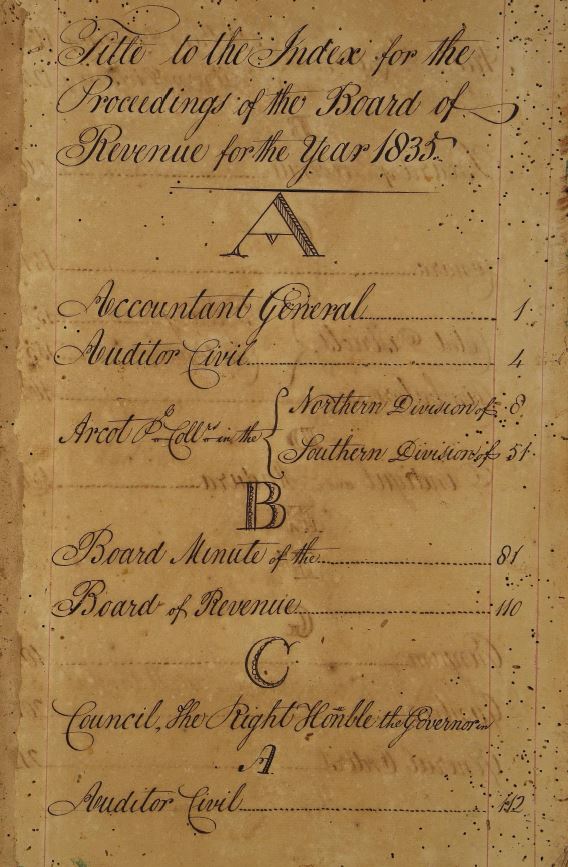 Title to the Index for the
Proceedings of the Board of
Revenue for the Year 1835.
A
Accountant General 1
Auditor Civil 4
Arcot Pl. Collrs in the { Northern Division of 8
Southern Division of 51
B
Board Minute of the 81
Board of Revenue 110
C
Council, The Right Honble the Governor in
A
Auditor Civil 112